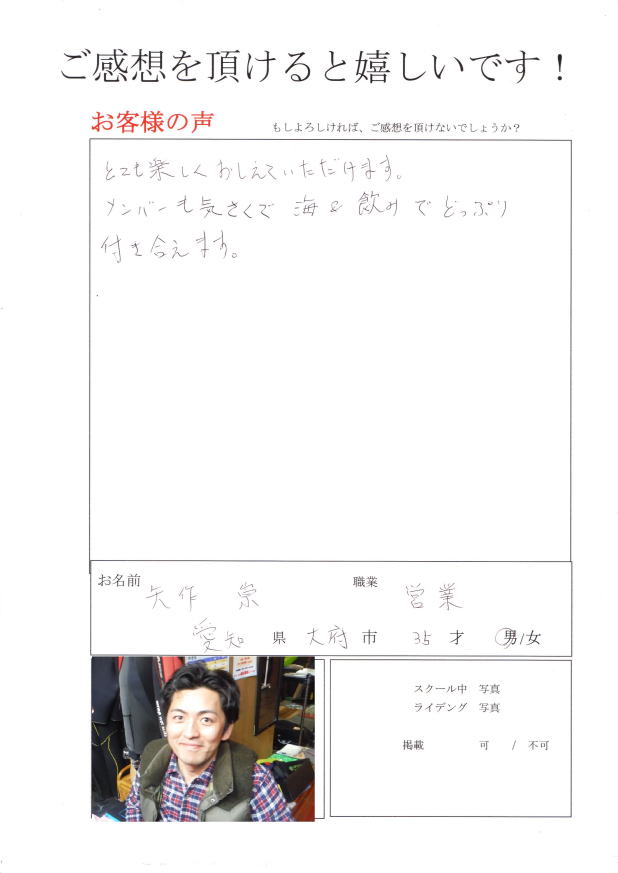 ご感想を頂けると嬉しいです！
お客様の声
もしよろしければ、ご感想を頂けないでしょうか？
とても楽しくおしえていただけます。
メンバーも気さくで 海&飲みでどっぷり
付き合えます。
お名前 矢作 崇 職業 営業
愛知 県 大府 市 35 才 男/女
スクール中 写真
ライデング 写真
掲載 可 / 不可